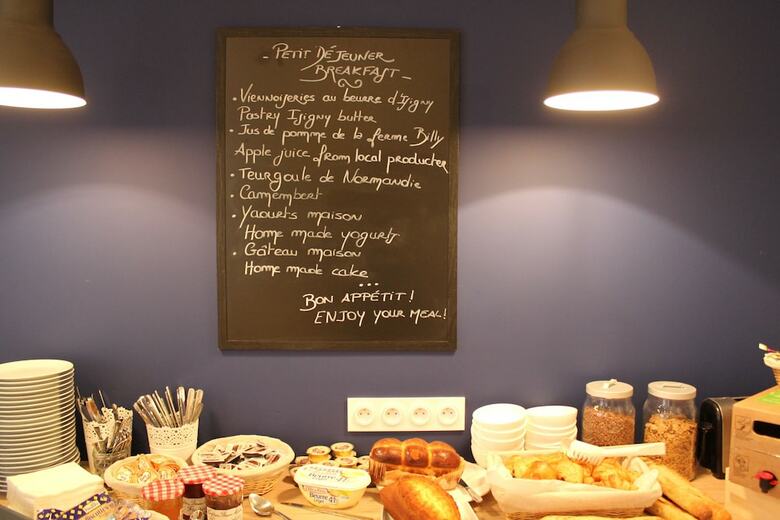 - PETIT DÉJEUNER
BREAKFAST -
• Viennoiseries au beurre d'Isigny
Pastry Isigny butter
• Jus de pomme de la ferme Billy
Apple juice from local producter
• Teurgoule de Normandie
• Camembert
• Yaourts maison
Home made yogurts
• Gâteau maison
Home made cake
...
BON APPÉTIT !
ENJOY YOUR MEAL !
Beurre